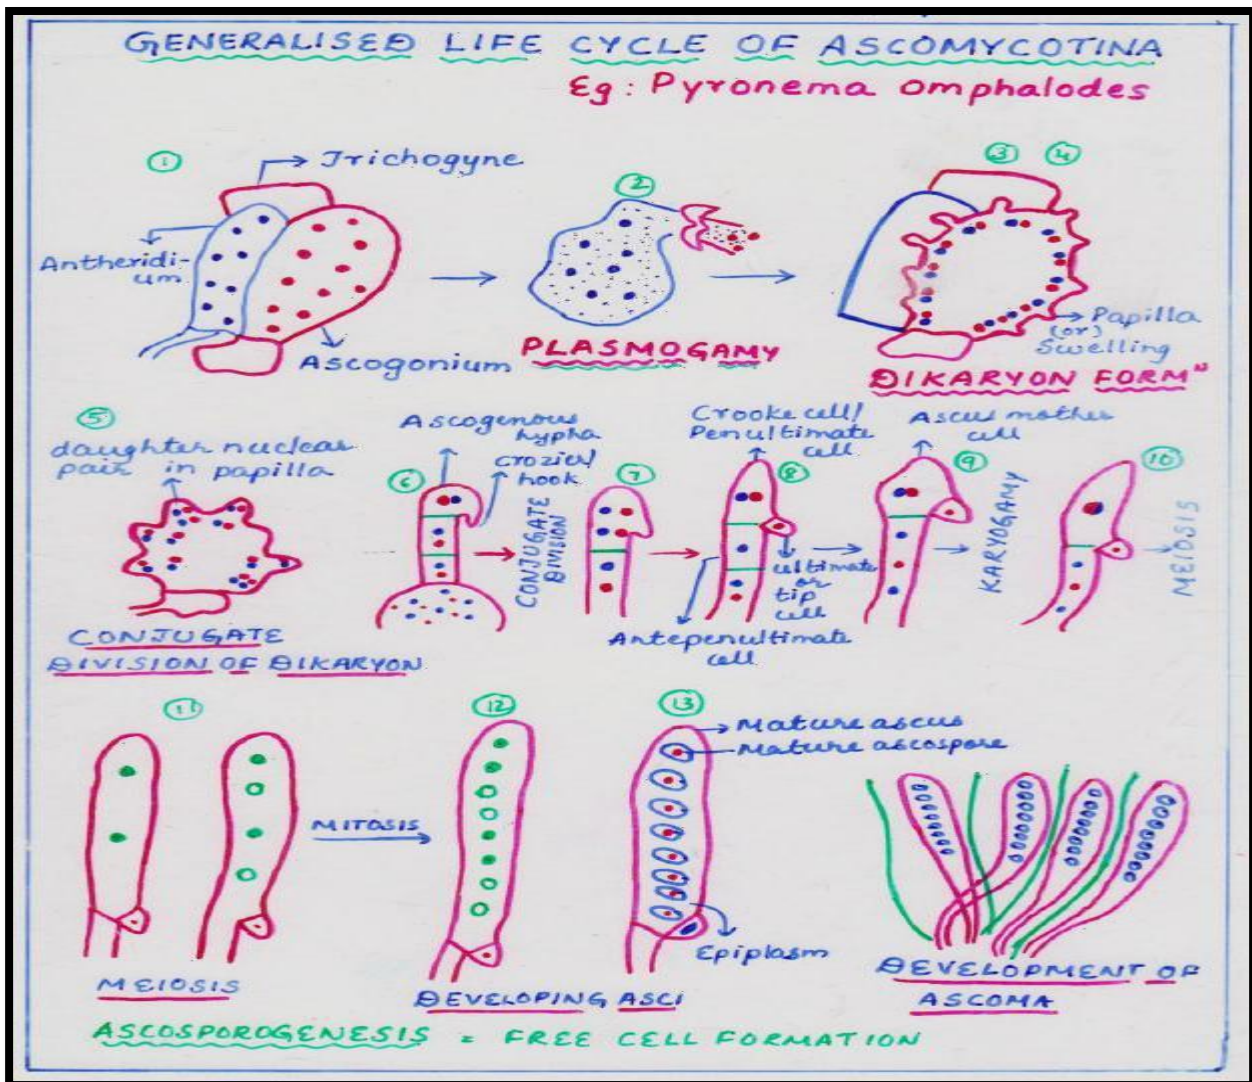 GENERALISED LIFE CYCLE OF ASCOMYCOTINA
Eg: Pyronema omphalodes
1
Trichogyne
Antheridi-
um
Ascogonium
2
PLASMOGAMY
3 4
Papilla
(or)
Swelling
DIKARYON FORM"
5
daughter nuclear
pair in papilla
CONJUGATE
DIVISION OF DIKARYON
6
Ascogenous
hypha
crozier/
hook
CONJUGATE
DIVISION
7
Crooke cell/
Penultimate
cell
8
ultimate
or
tip
cell
Antepenultimate
cell
Ascus mother
cell
9
KARYOGAMY
10
MEIOSIS
11
MEIOSIS
MITOSIS
12
DEVELOPING ASCI
13
Mature ascus
Mature ascospore
Epiplasm
DEVELOPMENT OF
ASCOMA
ASCOSPOROGENESIS = FREE CELL FORMATION